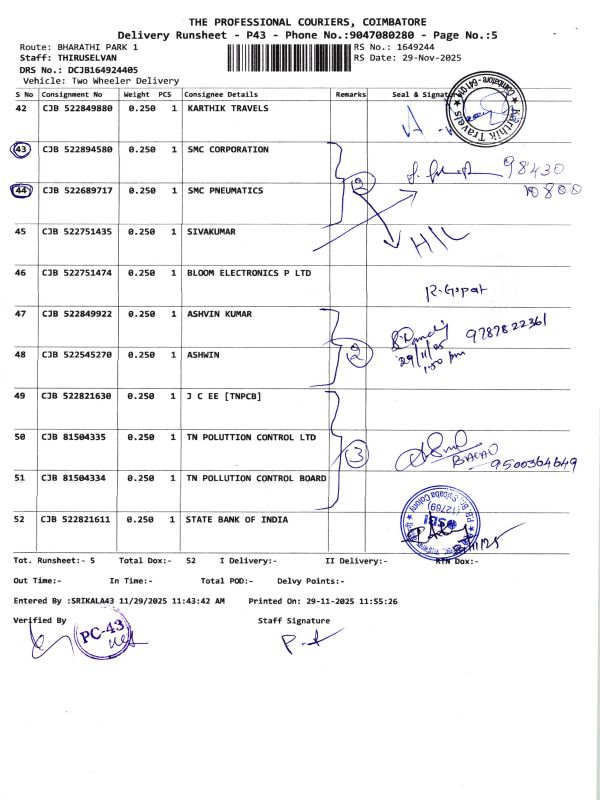 THE PROFESSIONAL COURIERS, COIMBATORE
Delivery Runsheet - P43 - Phone No.:9047080280 - Page No.:5
Route: BHARATHI PARK 1 RS No.: 1649244
Staff: THIRUSELVAN RS Date: 29-Nov-2025
DRS No.: DCJB164924405
Vehicle: Two Wheeler Delivery
S No Consignment No Weight PCS Consignee Details Remarks Seal & Signature
42 CJB 522849880 0.250 1 KARTHIK TRAVELS
Karthik Travels
43 CJB 522894580 0.250 1 SMC CORPORATION
98430
44 CJB 522689717 0.250 1 SMC PNEUMATICS 2
10800
45 CJB 522751435 0.250 1 SIVAKUMAR H/L
46 CJB 522751474 0.250 1 BLOOM ELECTRONICS P LTD
R. Gopal
47 CJB 522849922 0.250 1 ASHVIN KUMAR
9787822361
48 CJB 522545270 0.250 1 ASHWIN 2 29/11/25
1:50 pm
49 CJB 522821630 0.250 1 J C EE [TNPCB]
50 CJB 81504335 0.250 1 TN POLUTTION CONTROL LTD 3
BALAJI 9500364649
51 CJB 81504334 0.250 1 TN POLLUTION CONTROL BOARD
(12769)
SBI
52 CJB 522821611 0.250 1 STATE BANK OF INDIA
Tot. Runsheet:- 5 Total Dox:- 52 I Delivery:- II Delivery:- RTN Dox:-
Out Time:- In Time:- Total POD:- Delvy Points:-
Entered By :SRIKALA43 11/29/2025 11:43:42 AM Printed On: 29-11-2025 11:55:26
Verified By Staff Signature
PC-43